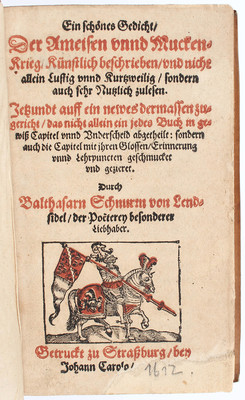 Ein schönes Gedicht/
Der Ameisen vnnd Mucken-
Krieg/ Künstlich beschrieben/ vnd nicht
allein Lustig vnnd Kurtzweilig/ sondern
auch sehr Nutzlich zulesen.
Jetzundt auff ein newes dermassen zu-
gericht/ das nicht allein ein jedes Buch in ge-
wiß Capitel vnnd Vnderscheid abgetheilt: sondern
auch die Capitel mit jhren Glossen/ Erinnerung
vnnd Lehrpuncten geschmucket
vnd gezieret.
Durch
Balthasarn Schnurrn von Lend-
sidel/ der Poëterey besonderer
Liebhaber.
Getruckt zu Straßburg/ bey
Johann Carolo/
1612.